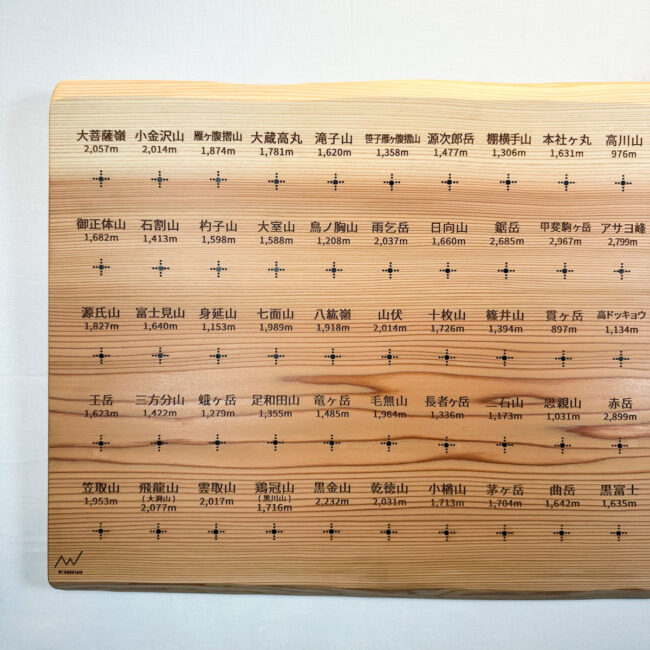 大菩薩嶺 小金沢山 雁ヶ腹摺山 大蔵高丸 滝子山 笹子雁ヶ腹摺山 源次郎岳 棚横手山 本社ヶ丸 高川山
2,057m 2,014m 1,874m 1,781m 1,620m 1,358m 1,477m 1,306m 1,631m 976m
御正体山 石割山 杓子山 大室山 鳥ノ胸山 雨乞岳 日向山 鋸岳 甲斐駒ヶ岳 アサヨ峰
1,682m 1,413m 1,598m 1,588m 1,208m 2,037m 1,660m 2,685m 2,967m 2,799m
源氏山 富士見山 身延山 七面山 八紘嶺 山伏 十枚山 篠井山 貫ヶ岳 高ドッキョウ
1,827m 1,640m 1,153m 1,989m 1,918m 2,014m 1,726m 1,394m 897m 1,134m
王岳 三方分山 蛾ヶ岳 足和田山 竜ヶ岳 毛無山 長者ヶ岳 二石山 思親山 赤岳
1,623m 1,422m 1,279m 1,355m 1,485m 1,964m 1,336m 1,173m 1,031m 2,899m
笠取山 飛龍山 雲取山 鶏冠山 黒金山 乾徳山 小楢山 茅ヶ岳 曲岳 黒富士
1,953m (大洞山) 2,017m (黒川山) 2,232m 2,031m 1,713m 1,704m 1,642m 1,635m
2,077m 1,716m